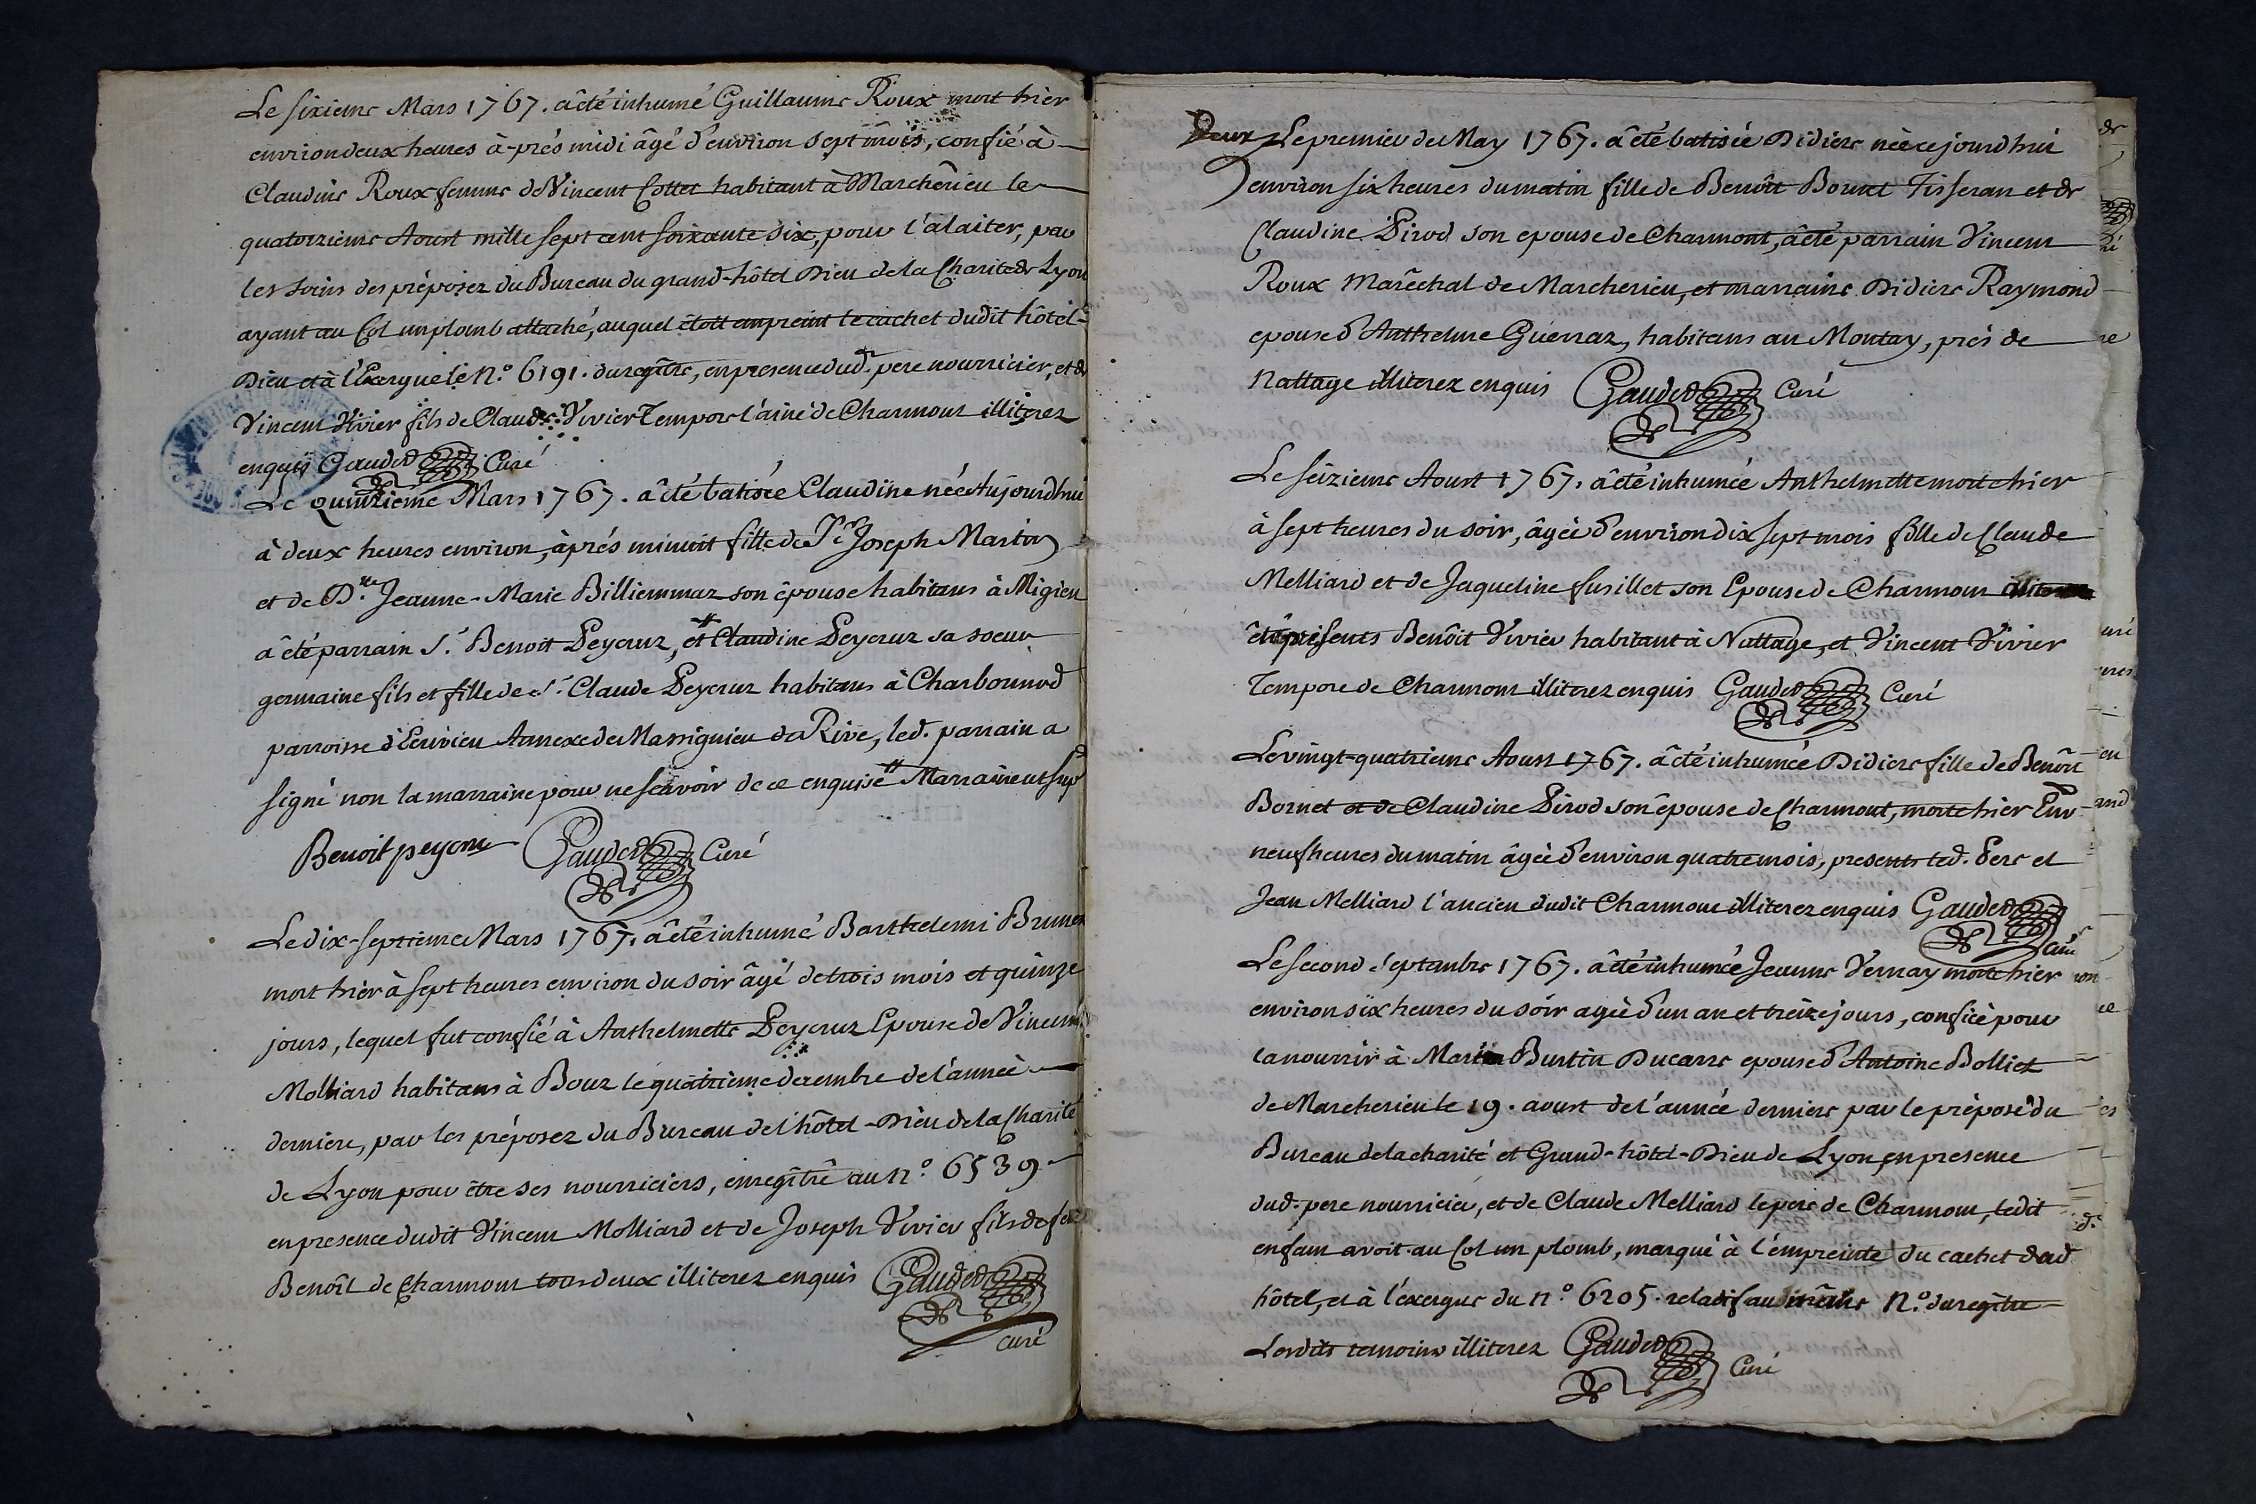 Le sixieme Mars 1767. a été inhumé Guillaume Roux mort hier
environ deux heures à-prés midi âgé d'environ sept mois, confié à
Claudine Roux femme de Vincent Collet habitant à Marcherieu le
quatorzieme Aoust mille sept cent soixante six, pour l'alaiter, par
les soins des préposez du Bureau du grand-hôtel Dieu de la Charité de Lyon
ayant au Col un plomb attaché, auquel étoit empreint le cachet dudit hôtel-
Dieu et à l'Exergue le N.o 6191. du regître, en presence dud. pere nourricier, et de
Vincent Vivier fils de Claude Vivier Tempore l'ainé de Charmont illiterez
enquis Gaudet Curé
Le Quinzieme Mars 1767. a été batisée Claudine née Aujourdhui
à deux heures environ, àprés minuit fille de Sr. Joseph Martin
et de D.lle Jeanne-Marie Billiemmaz son épouse habitans à Migieu
a été parrain S.r Benoit Peycruz, et Claudine Peycruz sa soeur
germaine fils et fille de S.r Claude Peycruz habitans à Charbonnod
parroisse d'Ecrivieu Annexe de Massignieu de Rive, led. parrain a
signé non la marraine pour ne scavoir de ce enquise Marraine ut sup
Benoit peycru Gaudet Curé
Le dix-septieme Mars 1767. a été inhumé Barthelemi Brunet
mort hier à sept heures environ du soir âgé de trois mois et quinze
jours, lequel fut confié à Anthelmette Peycruz Epouse de Vincent
Molliard habitans à Bouz le quatrieme decembre de l'année
derniere, par les préposez du Bureau de l'hôtel-Dieu de la Charité
de Lyon pour être ses nourriciers, enregîtré au n.o 6539
en presence dudit Vincent Molliard et de Joseph Vivier fils de feu
Benoît de Charmont tous deux illiterez enquis Gaudet
Curé
Le premier de May 1767. a été batisée Didiere née ce jourdhui
environ six heures du matin fille de Benoît Bornet Tisseran et de
Claudine Pirod son epouse de Charmont, a été parrain Vincent
Roux Marêchal de Marcherieu, et marraine Didiere Raymond
epouse d'Anthelme Guerraz, habitans au Montay, prés de
Nattage illiterez enquis Gaudet Curé
Le seizieme Aoust 1767. a été inhumée Anthelmette morte hier
à sept heures du soir, âgée d'environ dix sept mois fille de Claude
Melliard et de Jaqueline fusillet son Epouse de Charmont
présents Benôit Vivier habitant à Nattage, et Vincent Vivier
Tempore de Charmont illiterez enquis Gaudet Curé
Le vingt-quatrieme Aoust 1767. a été inhumée Didiere fille de Benoît
Bornet et de Claudine Pirod son épouse de Charmont, morte hier Env
neuf heures du matin âgée d'environ quatre mois, presents led. Pere et
Jean Melliard l'ancien dudit Charmont illiterez enquis Gaudet
Curé
Le second Septembre 1767. a été inhumée Jeanne Vernay morte hier
environ six heures du soir agée d'un an et treize jours, confiée pour
la nourrir à Burtin Ducarre epouse d'Antoine Bolliet
de Marcherieu le 19. aoust de l'année derniere par le préposé du
Bureau de la charité et Grand-hôtel-Dieu de Lyon, en presence
dud. pere nourricier, et de Claude Melliard le pere de Charmont, ledit
enfant avoit au Col un plomb, marqué à l'empreinte du cachet dud
hôtel, et à l'exergue du n.o 6205. relatif au N.o du regître
Lesdits temoins illiterez Gaudet Curé